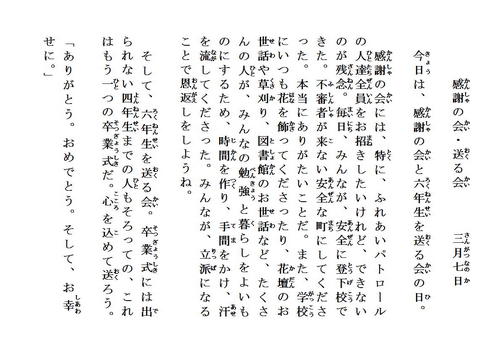 感謝の会・送る会　三月七日
今日は、感謝の会と六年生を送る会の日。
感謝の会には、特に、ふれあいパトロール
の人達全員をお招きしたいけれど、できない
のが残念。毎日、みんなが、安全に登下校で
きた。不審者が来ない安全な町にしてくださ
った。本当にありがたいことだ。また、学校
にいつも花を飾ってくださったり、花壇のお
世話や草刈り、図書館のお世話など、たくさ
んの人が、みんなの勉強と暮らしをよいも
のにするため、時間を作り、手間をかけ、汗
を流してくださった。みんなが、立派になる
ことで恩返しをしようね。
そして、六年生を送る会。卒業式には出
られない四年生までの人もそろっての、これ
はもう一つの卒業式だ。心を込めて送ろう。
「ありがとう。おめでとう。そして、お幸
せに。」